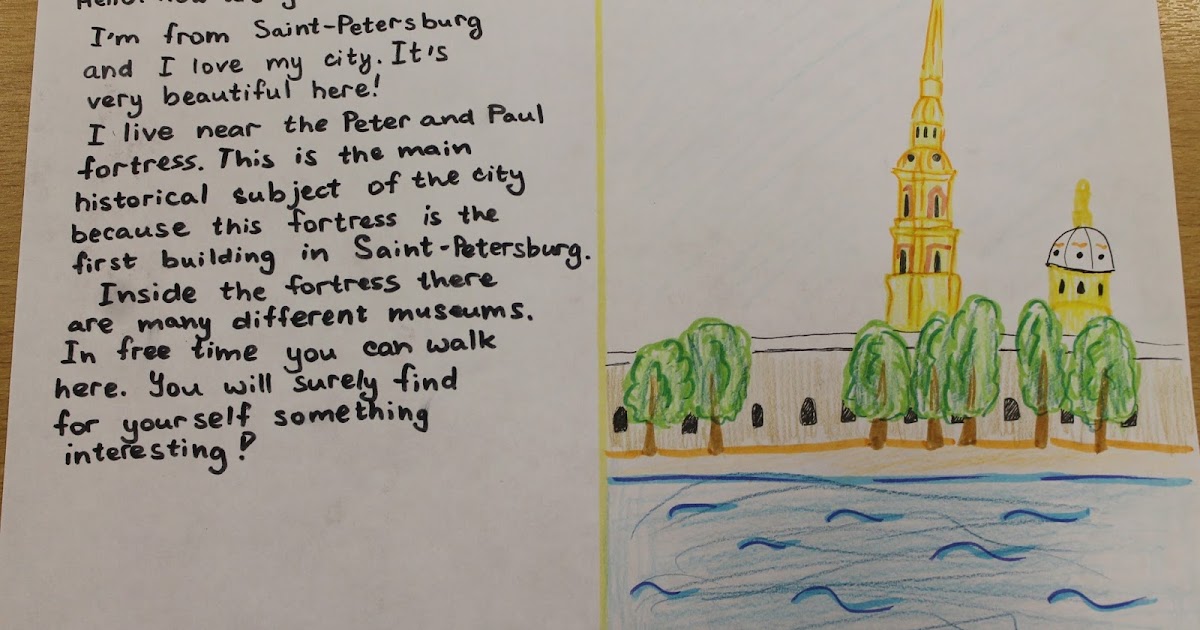 I'm from Saint-Petersburg
and I love my city. It's
very beautiful here!
I live near the Peter and Paul
fortress. This is the main
historical subject of the city
because this fortress is the
first building in Saint-Petersburg.
Inside the fortress there
are many different museums.
In free time you can walk
here. You will surely find
for yourself something
interesting!